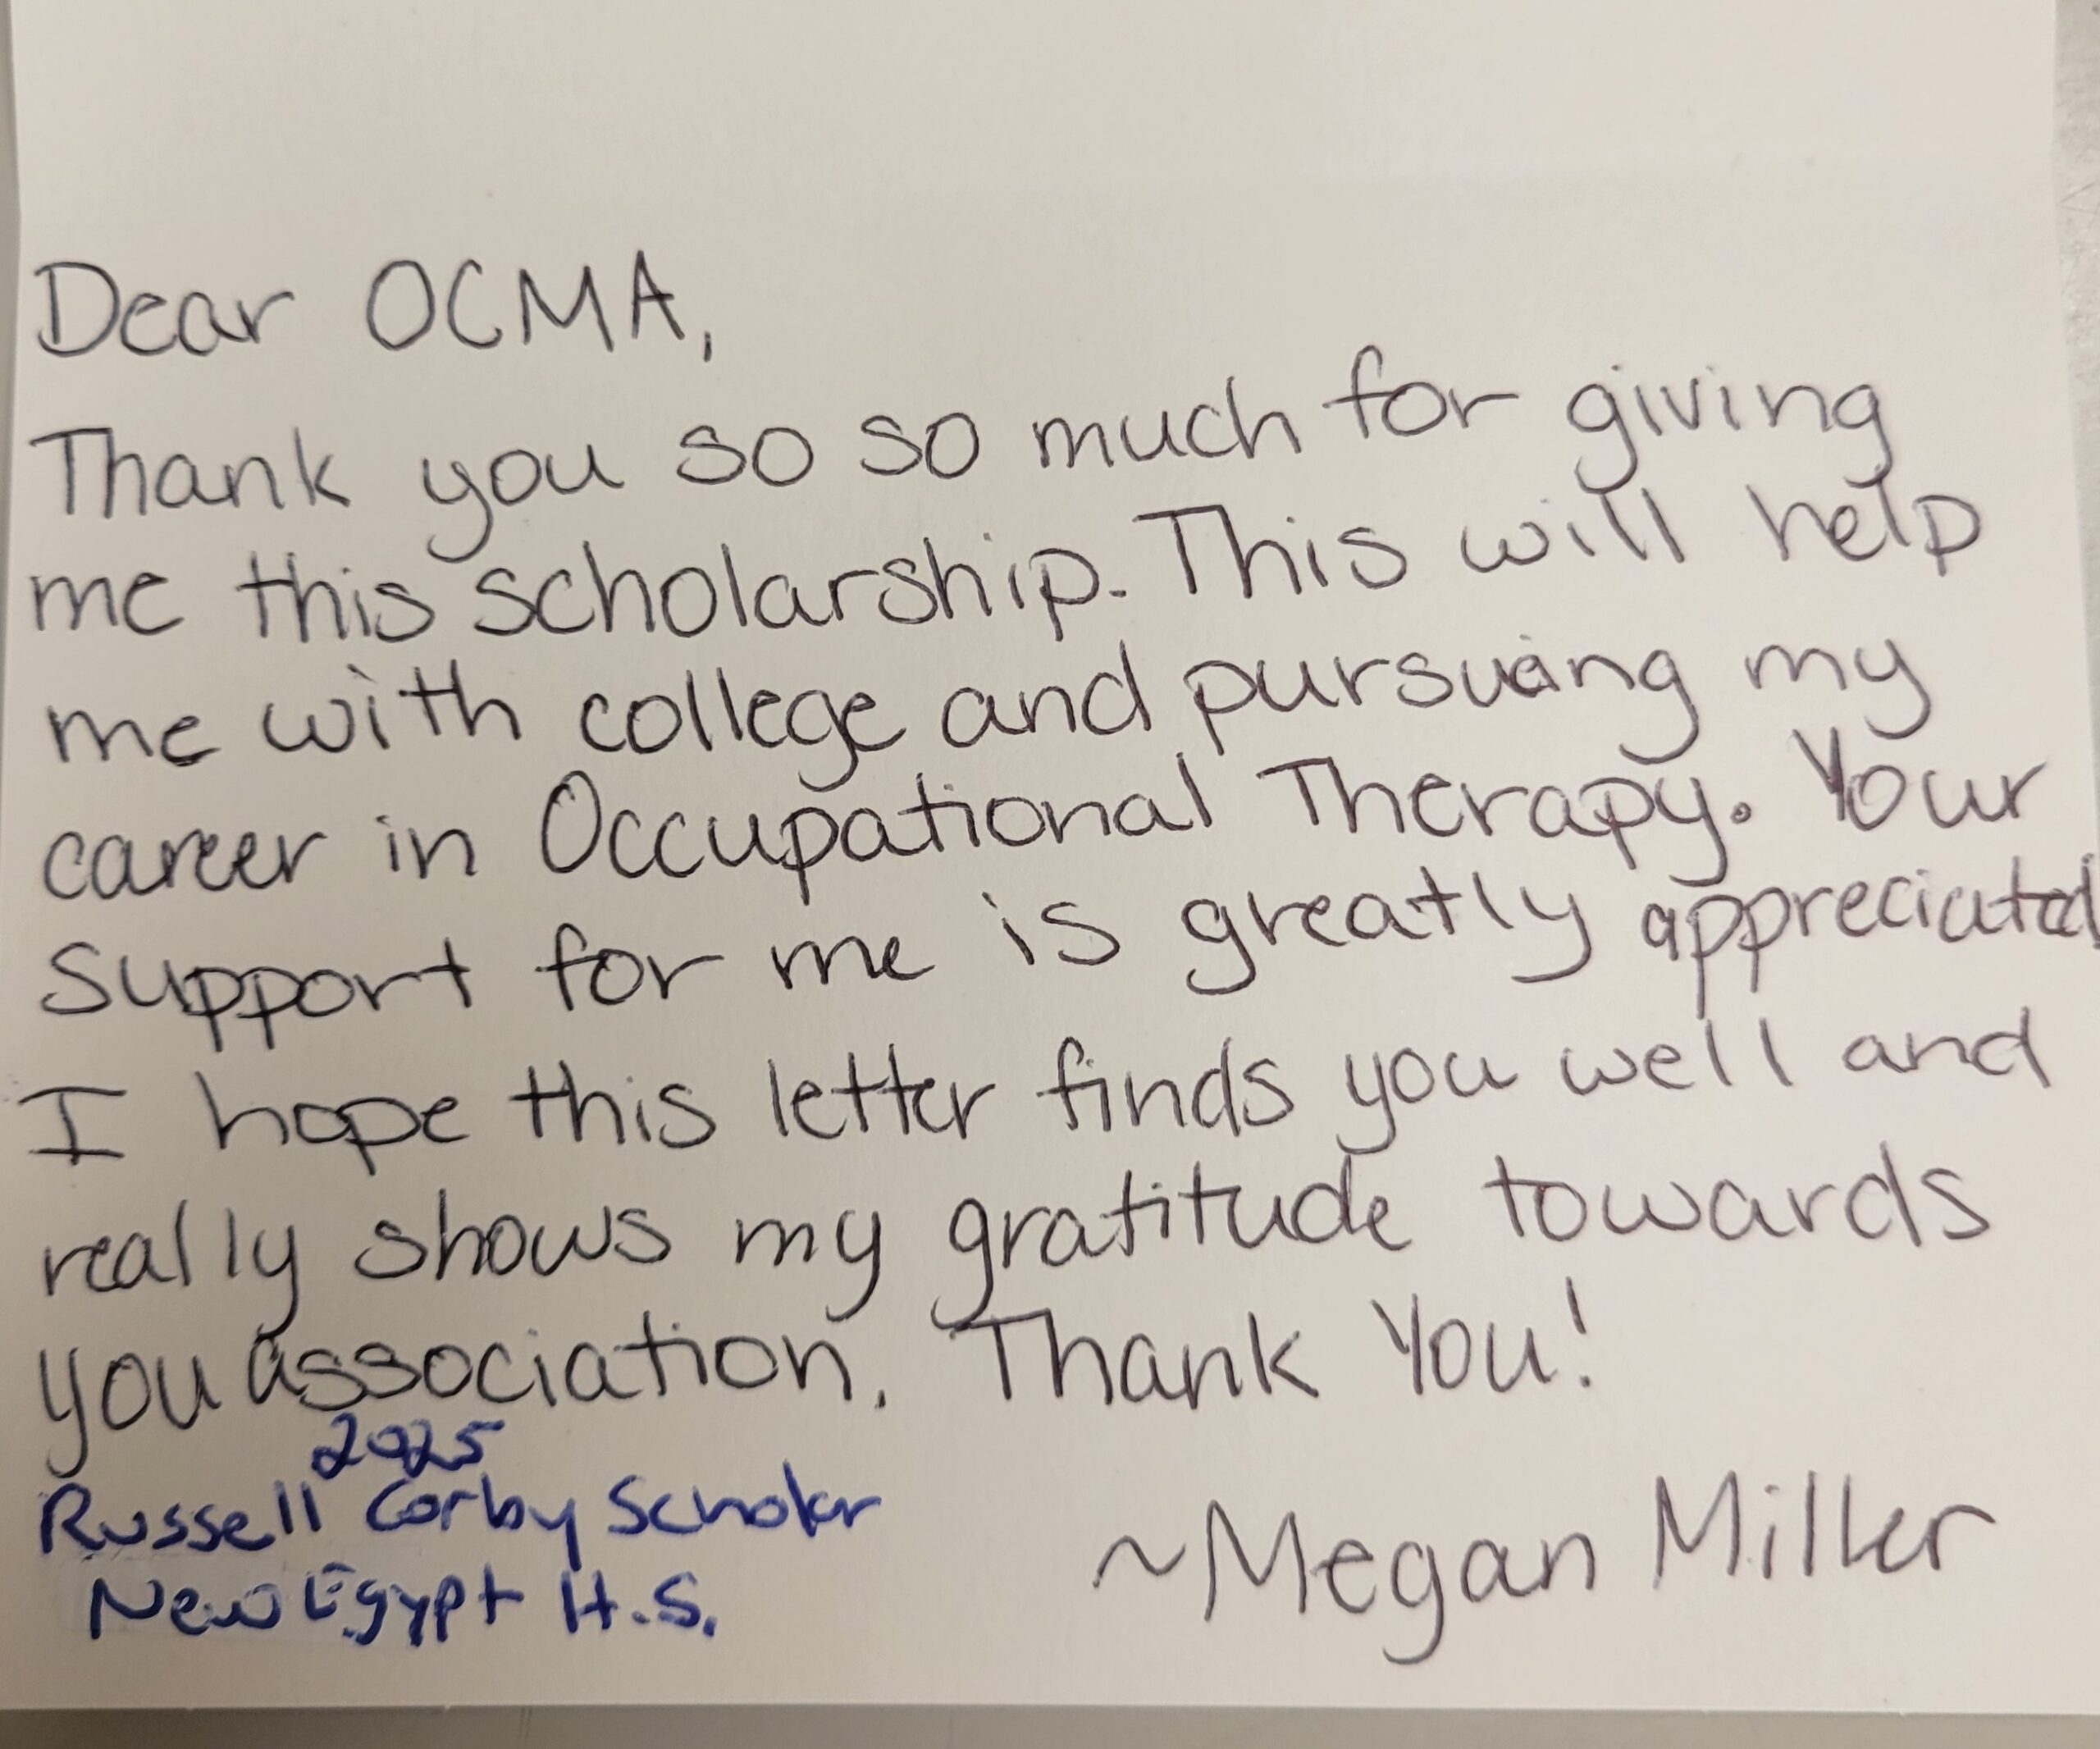 Dear OCMA,
Thank you so so much for giving
me this scholarship. This will help
me with college and pursuing my
career in Occupational Therapy. Your
support for me is greatly appreciated
I hope this letter finds you well and
really shows my gratitude towards
you association. Thank You!
2025
Russell Corby Scholar
New Egypt H.S.
~Megan Miller